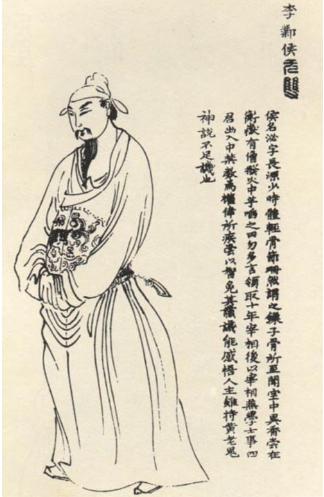 李鄴侯
侯名泌字長源少時體輕骨節珊然謂之鎖子骨所至閤室中異香常在
衡嶽有僧撥火中芋啗之曰勿多言領取十年宰相後以宰相兼學士事四
君出入中禁數為權倖所疾常以智免其讜議能感悟人主雖持黃老鬼
神說不足譏也